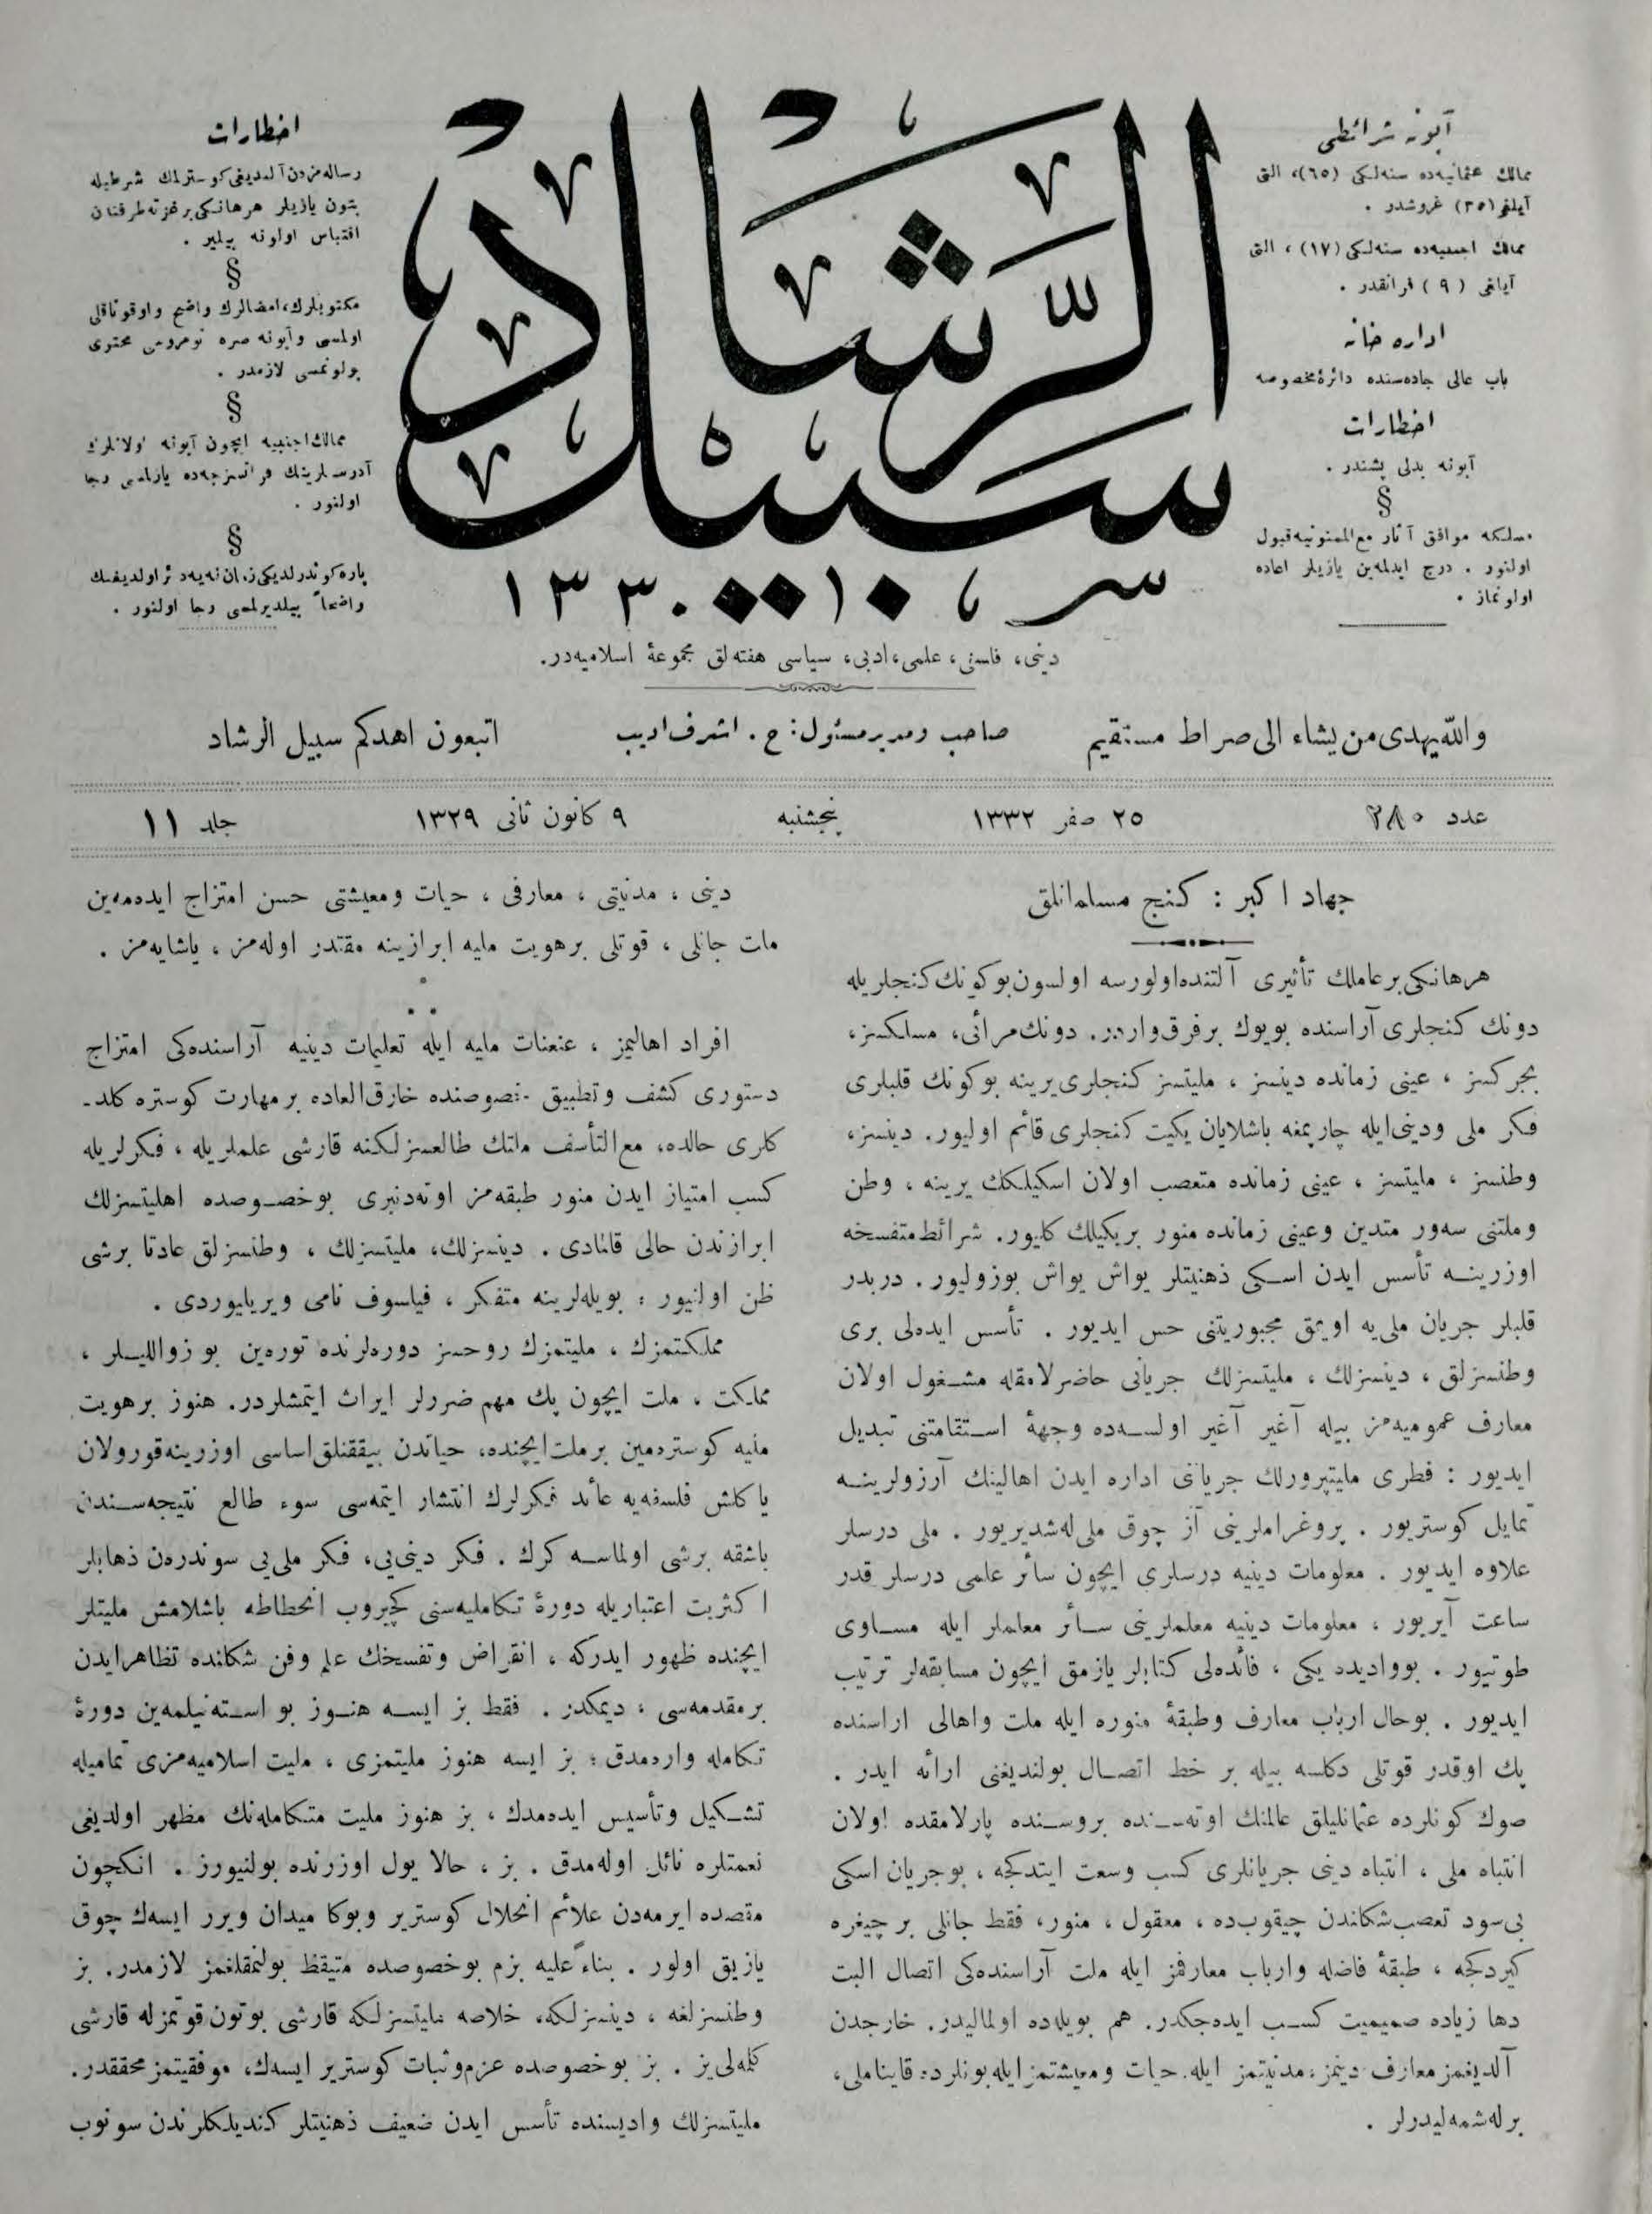 آبونه شرائطی
ممالك عثمانیه‌ده سنه‌لكی (٦٥)، التی
آیلغی (٣٥) غروشدر .
ممالك اجنبیه‌ده سنه‌لكی (١٧) ، التی
آیلغی ( ٩ ) فرانقدر .
اداره خانه
باب عالی جاده‌سنده دائرۀ مخصوصه
اخطارات
آبونه بدلی پشندر .
§
مسلكه موافق آثار مع الممنونیه قبول
اولنور . درج ایدلمه‌ین یازیلر اعاده
اولونماز .
سبیل الرشاد
١٣٣٠
اخطارات
رساله‌مزدن آلندیغی كوسترلمك شرطیله
بتون یازیلر هرهانكی بر غزته طرفندن
اقتباس اولونه بیلیر .
§
مكتوبلرك، امضالرك واضح و اوقوناقلی
اولمسی و آبونه صره نومروسی محتوی
بولونمسی لازمدر .
§
ممالك اجنبیه ایچون آبونه اولانلرك
آدرسلرینك فرانسزجه‌ده یازلمسی رجا
اولنور .
§
پاره كوندرلدیكی زمان نه‌یه‌دائر اولدیغنك
واضحاً بیلدیرلمسی رجا اولنور .
دینی، فلسفی، علمی، ادبی، سیاسی هفته‌لق مجموعۀ اسلامیه‌در.
والله یهدی من یشاء الی صراط مستقیم
صاحب و مدیر مسئول : ح . اشرف ادیب
اتبعون اهدكم سبیل الرشاد
عدد ٢٨٠
٢٥ صفر ١٣٣٢
پنجشنبه
٩ كانون ثانی ١٣٢٩
جلد ١١
جهاد اكبر : كنج مسلمانلق
هرهانكی بر عاملك تأثیری آلتنده اولورسه اولسون بوكونك كنجلریله
دونك كنجلری آراسنده بویوك بر فرق واردر. دونك مرائی، مسلكسز،
بجركسز ، عینی زمانده دینسز ، ملیتسز كنجلری یرینه بوكونك قلبلری
فكر ملی ودینی ایله چارپمغه باشلایان یكیت كنجلری قائم اولیور. دینسز،
وطنسز ، ملیتسز ، عینی زمانده متعصب اولان اسكیلكك یرینه ، وطن
وملتنی سه‌ور متدین وعینی زمانده منور بر یكیلك كلیور. شرائط متفسخه
اوزرینـه تأسس ایدن اسـكی ذهنیتلر یواش یواش بوزولیور . دربدر
قلبلر جریان ملی‌یه اویمق مجبوریتنی حس ایدیور . تأسس ایده‌لی بری
وطنسزلق ، دینسزلك ، ملیتسزلك جریانی حاضرلامقله مشـغول اولان
معارف عمومیه‌مز بیله آغیر آغیر اولسـه‌ده وجهۀ اسـتقامتنی تبدیل
ایدیور : فطری ملیتپرورلك جریاننی اداره ایدن اهالینك آرزولرینـه
تمایل كوستریور . پروغراملرینی آز چوق ملی‌له‌شدیریور . ملی درسلر
علاوه ایدیور . معلومات دینیه درسلری ایچون سائر علمی درسلر قدر
ساعت آیریور ، معلومات دینیه معلملرینی سـائر معلملر ایله مسـاوی
طوتیور . بووادیده یكی ، فائده‌لی كتابلر یازمق ایچون مسابقه‌لر ترتیب
ایدیور . بوحال ارباب معارف وطبقۀ منوره ایله ملت واهالی اراسنده
پك اوقدر قوتلی دكلسه بیله بر خط اتصـال بولندیغنی ارائه ایدر .
صوك كونلرده عثمانلیلق عالمنك اوته‌سـنده بروسـنده پارلامقده اولان
انتباه ملی ، انتباه دینی جریانلری كسب وسعت ایتدكجه ، بوجریان اسكی
بی‌سود تعصب شكلندن چیقوب‌ده ، معقول ، منور، فقط جانلی بر چیغره
كیردكجه ، طبقۀ فاضله وارباب معارفمز ایله ملت آراسنده‌كی اتصال البت
دها زیاده صمیمیت كسـب ایده‌جكدر. هم بویله‌ده اولمالیدر. خارجدن
آلدیغمز معارف دینمز، مدنیتمز ایله. حیات ومعیشتمز ایله بونلرده قاینامالی،
برله‌شمه‌لیدرلر .
دینی ، مدنیتی ، معارفی ، حیات ومعیشتی حسن امتزاج ایده‌مه‌ین
ملت جانلی ، قوتلی برهویت ملیه ابرازینه مقتدر اوله‌مز ، یاشایه‌مز .
افراد اهالیمز ، عنعنات ملیه ایله تعلیمات دینیه آراسنده‌كی امتزاج
دستوری كشف وتطبیق خصوصنده خارق‌العاده بر مهارت كوستره كلد-
كلری حالده، مع التأسف ملتك طالعسزلكنه قارشی علملریله ، فكرلریله
كسب امتیاز ایدن منور طبقه‌مز اوته‌دنبری بوخصـوصده اهلیتسزلك
ابرازندن خالی قالمادی . دینسزلك، ملیتسزلك ، وطنسزلق عادتا برشی
ظن اولنیور ، بویله‌لرینه متفكر ، فیلسوف نامی ویریلیوردی .
مملكتمزك ، ملیتمزك روحسز دوره‌لرنده توره‌ین بو زواللیـلر ،
مملكت ، ملت ایچون پك مهم ضررلر ایراث ایتمشلردر. هنوز برهویت
ملیه كوسترەمین بر ملت ایچنده، حیاتدن بیققنلق اساسی اوزرینه قورولان
یاكلش فلسفه‌یه عائد فكرلرك انتشار ایتمه‌سی سوء طالع نتیجه‌سـندن
باشقه برشی اولماسـه كرك . فـكر دینی‌یی، فكر ملی‌یی سوندره‌ن ذهابلر
اكثریت اعتباریله دورۀ تكاملیه‌سنی كچیروب انحطاطه باشلامش ملیتلر
ایچنده ظهور ایدركه ، انقراض وتفسخك علم وفن شكلنده تظاهر ایدن
بر مقدمه‌سی ، دیمكدر . فقط بز ایسـه هنـوز بو اسـته‌نیلمه‌ین دورۀ
تكامله وارەمدق ؛ بز ایسه هنوز ملیتمزی ، ملیت اسلامیه‌مزی تمامیله
تشـكیل وتأسیس ایده‌مدك ، بز هنوز ملیت متكامله‌نك مظهر اولدیغی
نعمتلره نائل اوله‌مدق . بز ، حالا یول اوزرنده بولنیورز . انكچون
مقصده ایرمه‌دن علائم انحلال كوستریر وبوكا میدان ویرر ایسه‌ك چوق
یازیق اولور . بناءً علیه بزم بوخصوصده متیقظ بولنمقلغمز لازمدر. بز
وطنسزلغه ، دینسزلكه، خلاصه ملیتسزلكه قارشی بوتون قوتمزله قارشی
كلمه‌لی‌یز . بز بو خصوصده عزم وثبات كوستریر ایسه‌ك، موفقیتمز محققدر.
ملیتسزلك وادیسنده تأسس ایدن ضعیف ذهنیتلر كندیلكلرندن سونوب